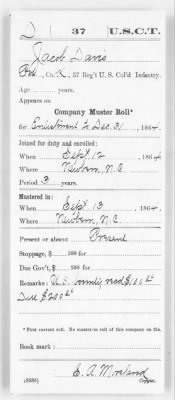 D 37 U.S.C.T.
Jacob Davis
Pvt., Co. K, 37 Reg't U.S. Col'd Infantry.
Age years.
Appears on
Company Muster Roll*
for Enlistment to Dec. 31, 1864.
Joined for duty and enrolled:
When Sept. 12, 1864.
Where Newbern, N.C.
Period 3 years.
Mustered in:
When Sept 13, 1864.
Where Newbern, N.C.
Present or absent Present
Stoppage, $ 100 for
Due Gov't, $ 100 for
Remarks: U.S. bounty recd $100
Due $200
*First current roll. No muster-in roll of this company on file.
Book mark:
E. A. Moreland
(858b) Copyist.